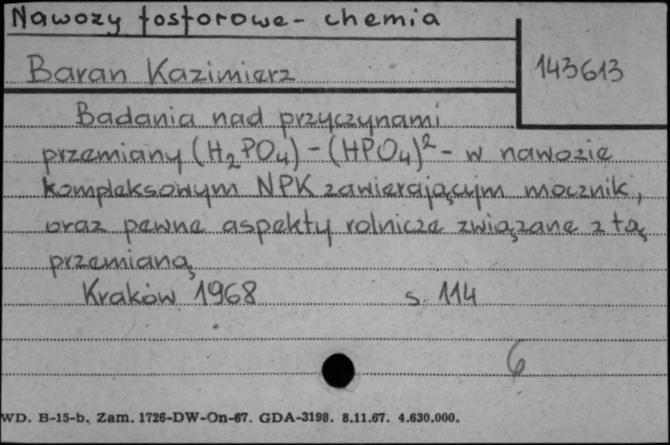 Nawozy fosforowe - chemia
143613
Baran Kazimierz
Badania nad przyczynami
przemiany (H₂PO₄) - (HPO₄)²- w nawozie
kompleksowym NPK zawierającym mocznik,
oraz pewne aspekty rolnicze związane z tą
przemianą
Kraków 1968 s. 114
6
WD. B-15-b. Zam. 1726-DW-On-67. GDA-3198. 8.11.67. 4.630.000.